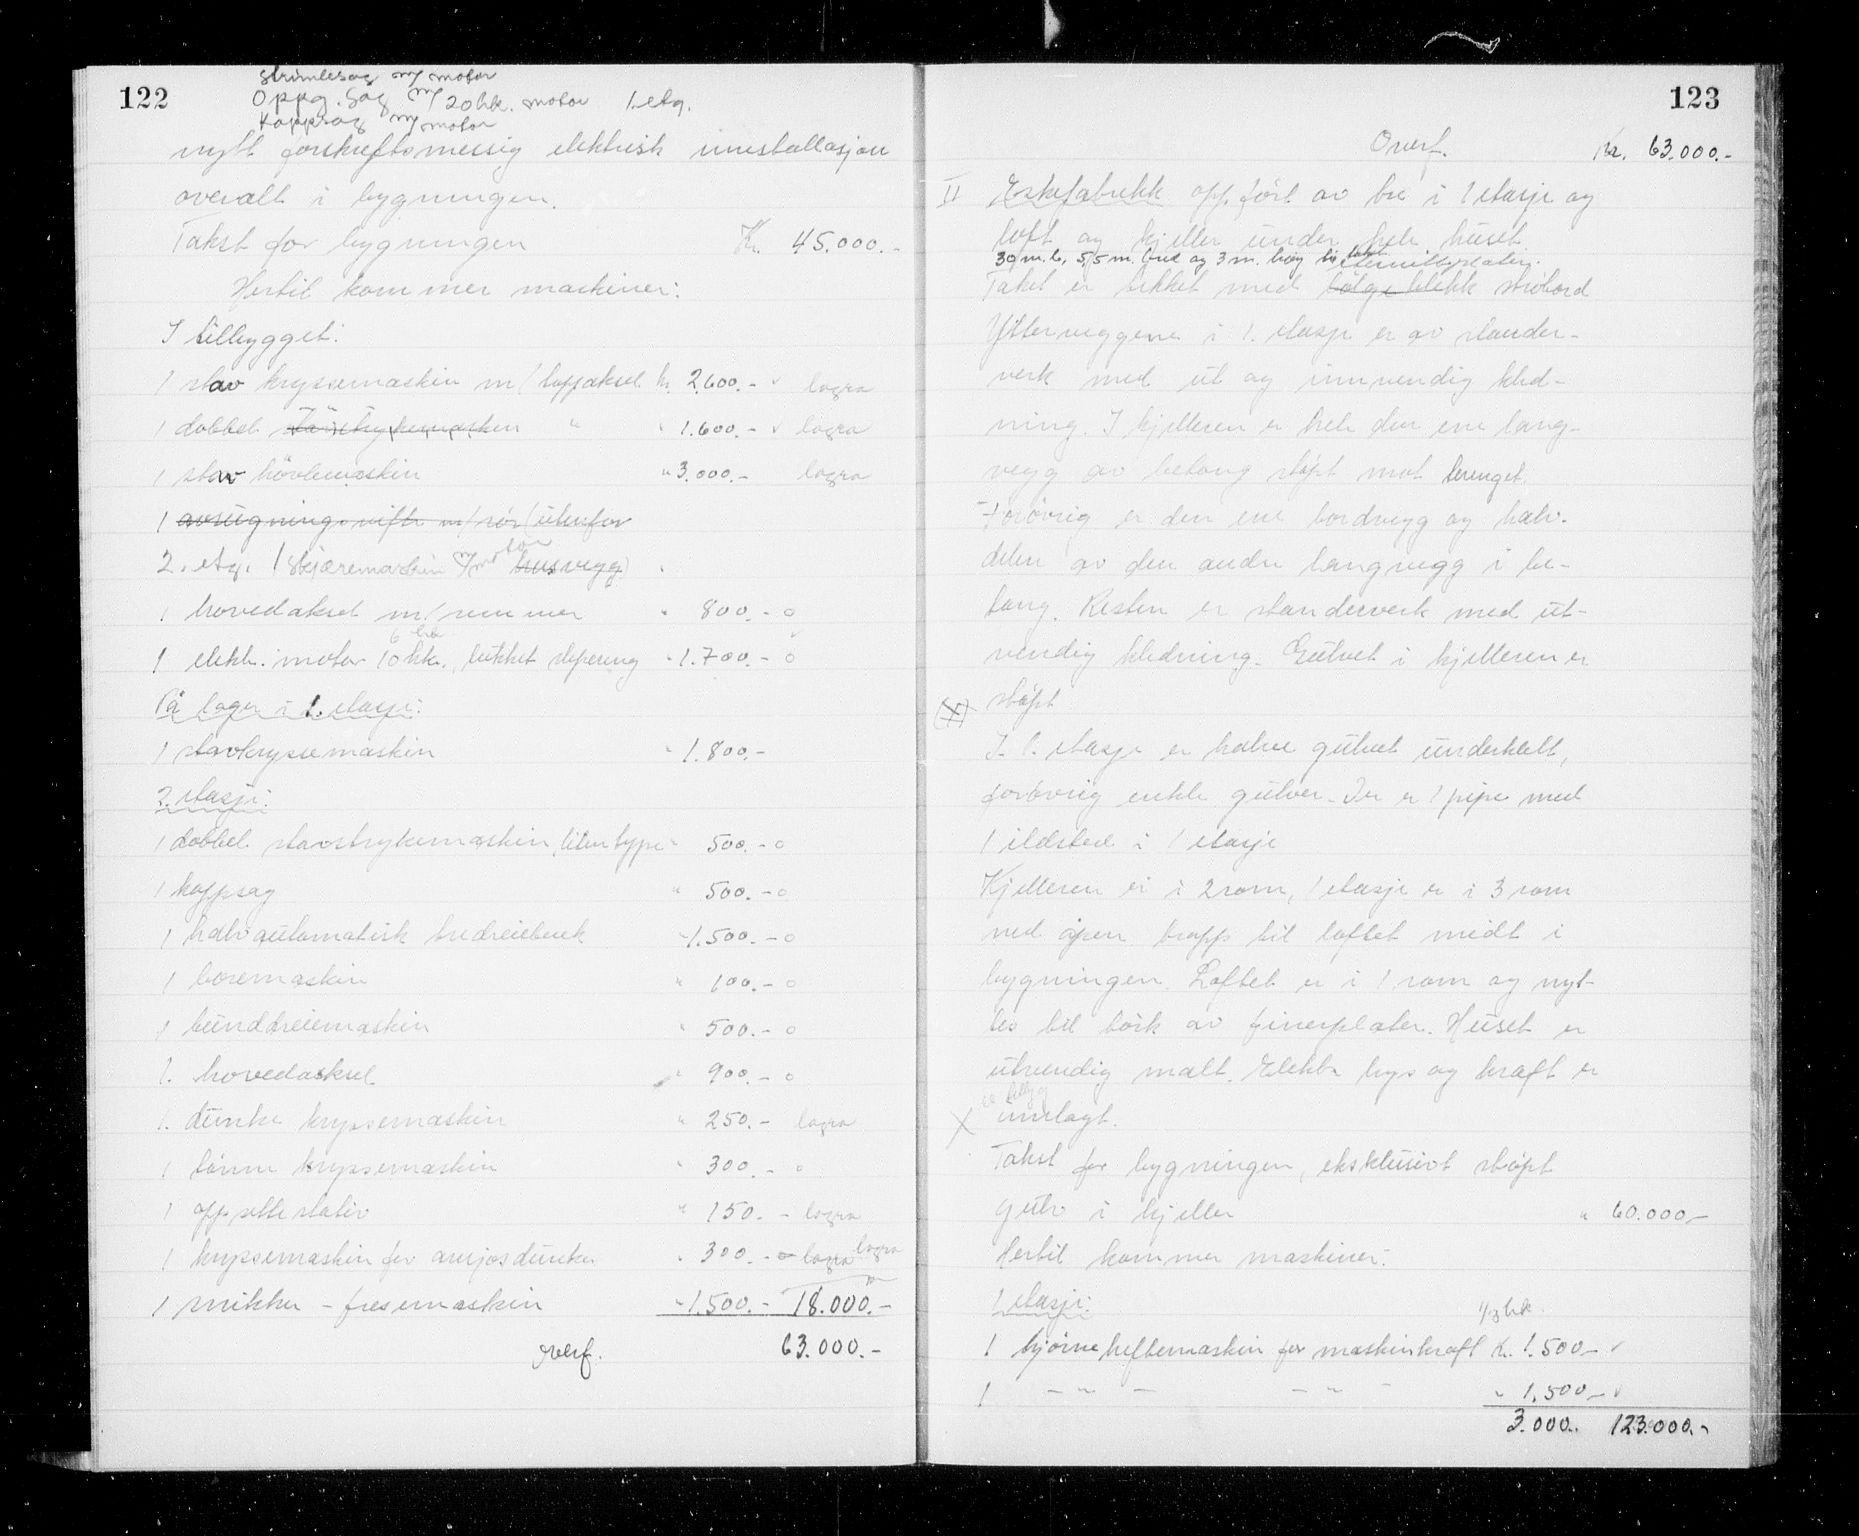 122
Strimlesag m/ motor
Oppg. Sag m/ 20 hk. motor 1. etg.
Kappsag m/ motor
nytt forskriftsmessig elektrisk innstallasjon
overalt i bygningen.
Takst for bygningen Kr. 45.000.-
Hertil kommer maskiner:
I tilbygget:
1 stav kryssemaskin m/ toppaksel kr. 2.600.- v lagra
1 dobbel " " 1.600.- v lagra
1 stav hövlemaskin " 3.000.- lagra
1 avsugningsvifte m/ rör (utenfor
2. etg. 1 Skjæremaskin m/ motor husvegg)
1 hovedaksel m/ remmer " 800.- o
6 hk
1 elekt. motor 10 hk., lukket " 1.700.- o
På lager i 1. etasje:
1 stavkryssemaskin " 1.800.-
2. etasje:
1 dobbel stavstrykemaskin, liten type " 500.- o
1 kappsag " 500.- o
1 halvautomatisk tredreiebenk " 1.500.- o
1 boremaskin " 100.- o
1 bunddreiemaskin " 500.- o
1. hovedaksel " 900.- o
1. dunke kryssemaskin " 250.- lagra
1 tönne kryssemaskin " 300.- o
1 oppsettestativ " 150.- lagra
1 kryssemaskin for ansjosdunker " 300.- o lagra lagra
1 snikker - fresemaskin " 1.500.- 18.000.-
Overf. 63.000.-
123
Overf. Kr. 63.000.-
II Eskefabrikk oppfört av tre i 1 etasje og
loft og kjeller under hele huset.
30 m. l., 5,5 m. bred og 3 m. høg til taket eternittplater.
Taket er tekket med bölgeblekk
Ytterveggene i 1. etasje er av stender-
verk med ut og innvendig kled-
ning. I kjelleren er hele den ene lang-
vegg av betong støpt mot terenget.
Forövrig er den ene bordvegg og halv-
delen av den andre langvegg i be-
tong. Resten er stenderverk med ut-
vendig kledning. Gulvet i kjelleren er
(X) støpt
I 1. etasje er halve gulvet underkledt,
forövrig enkle gulver. Der er 1 pipe med
1 ildsted i 1 etasje
Kjelleren er i 2 rom, 1 etasje er i 3 rom
med åpen trapp til loftet midt i
bygningen. Loftet er i 1 rom og nyt-
tes til törk av finerplater. Huset er
utvendig malt. Elektr. lys og kraft er
X innlagt.
Takst for bygningen, eksklusivt støpt
gulv i kjeller " 60.000.-
Hertil kommer maskiner:
1 etasje: 1/3 hk.
1 hjørneheftemaskin for maskinkraft kr. 1.500.- v
1 - " - - " - " 1.500.- v
3.000.- 123.000.-